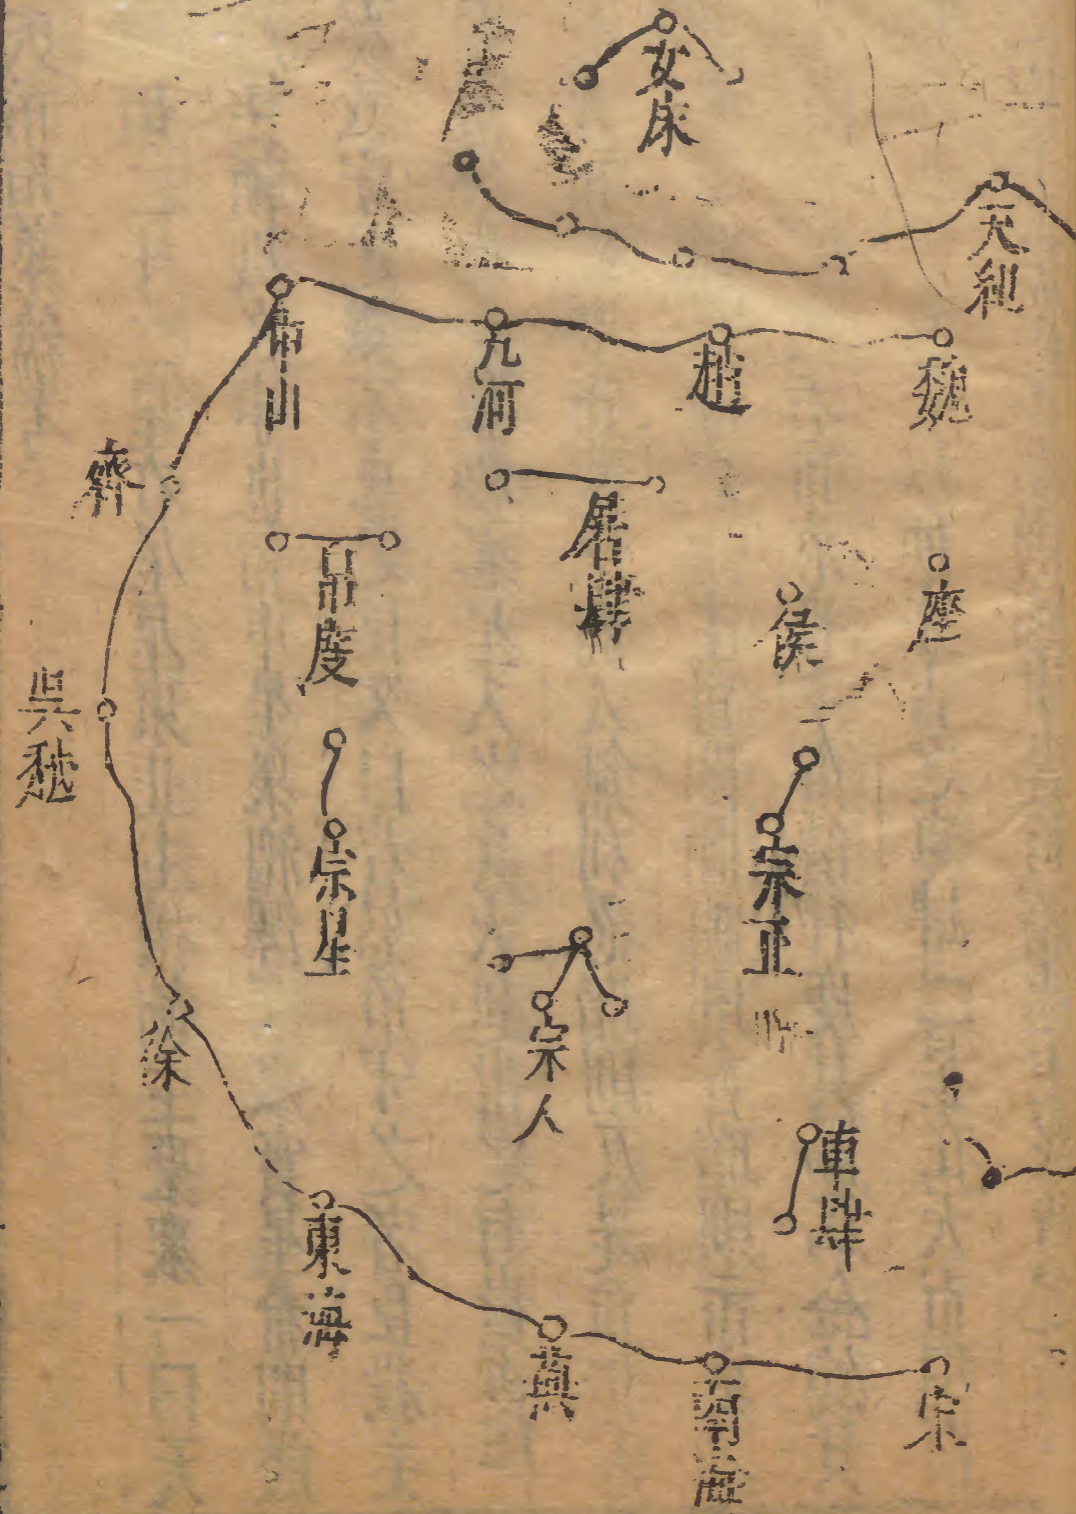 女床
天紀
魏
趙
九河
中山
齊
吳越
徐
東海
燕
南海
宋
屠肆
帛度
侯
座
宗星
宗正
宗人
車肆